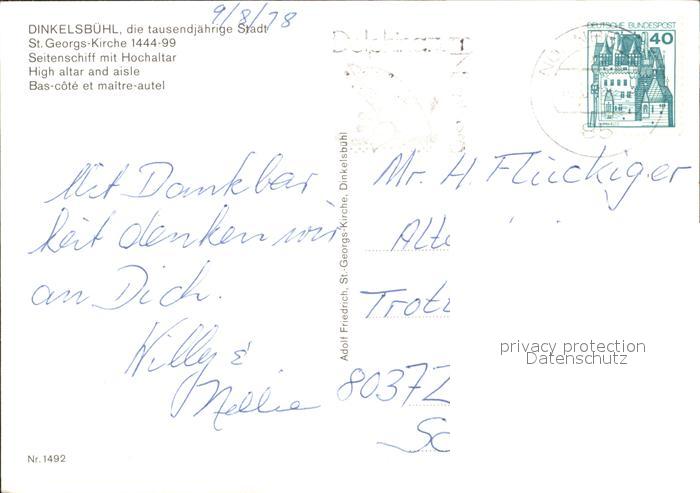 9/8/78
DINKELSBÜHL, die tausendjährige Stadt
St. Georgs-Kirche 1444-99
Seitenschiff mit Hochaltar
High altar and aisle
Bas-côté et maître-autel
Mit Dankbar
keit denken wir
an Dich.
Willy &
Nellie
Nr. 1492
Adolf Friedrich, St.-Georgs-Kirche, Dinkelsbühl
DEUTSCHE BUNDESPOST
40
Mr. H. Flückiger
Alte
Trotz
8037 Z
Sc
privacy protection
Datenschutz